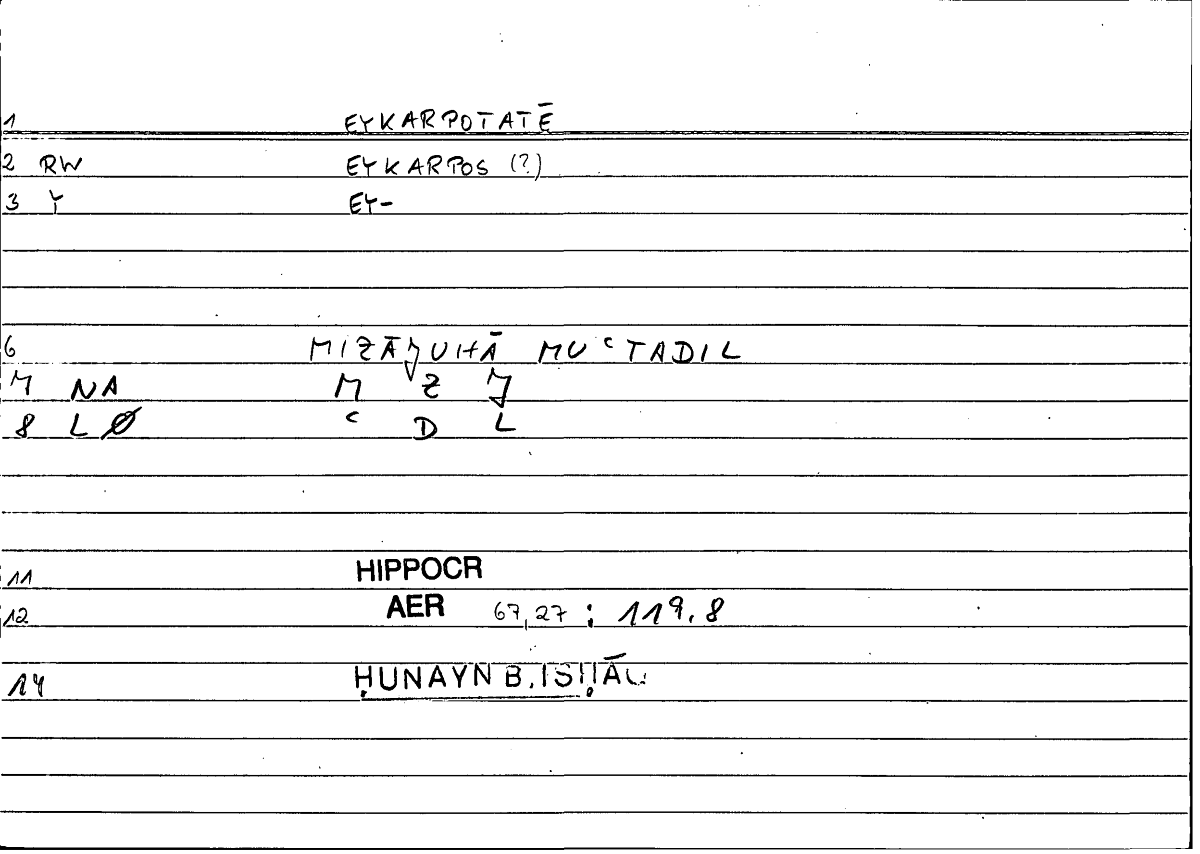 1 EYKARPOTATĒ
2 RW EYKARPOS (?)
3 Y EY-
6 MIZĀJUHĀ MUʿTADIL
7 NA M Z J
8 LØ ʿ D L
11 HIPPOCR
12 AER 67,27 ; 119.8
14 ḤUNAYN B. ISḤĀQ